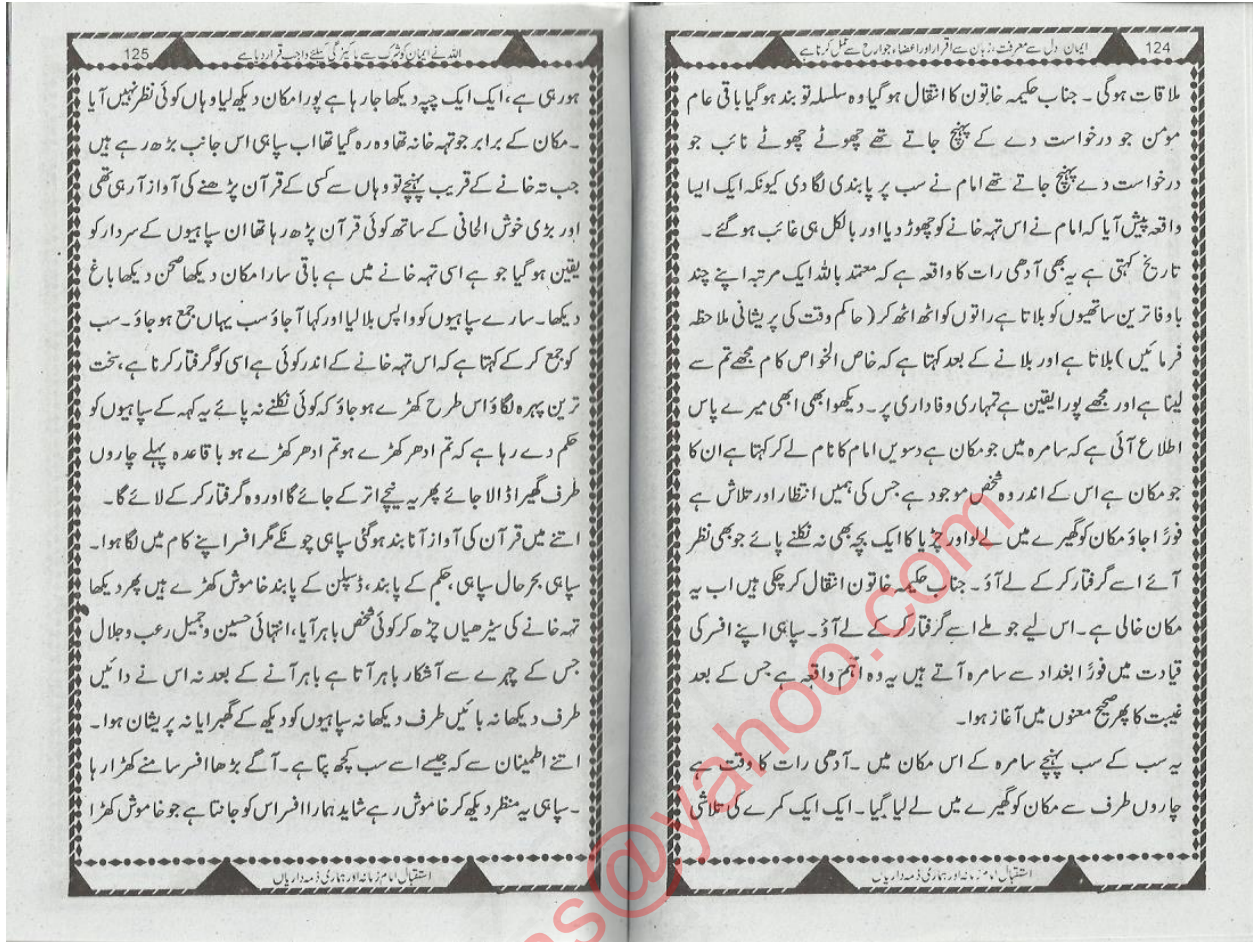 124
ایمان، دل سے معرفت، زبان سے اقرار اور اعضاء جوارح سے عمل کرنا ہے
ملاقات ہوگی ۔ جناب حکیمہ خاتون کا انتقال ہو گیا وہ سلسلہ تو بند ہو گیا باقی عام
مومن جو درخواست دے کے پہنچ جاتے تھے چھوٹے چھوٹے نائب جو
درخواست دے پہنچ جاتے تھے امام نے سب پر پابندی لگا دی کیونکہ ایک ایسا
واقعہ پیش آیا کہ امام نے اس تہہ خانے کو چھوڑ دیا اور بالکل ہی غائب ہو گئے ۔
تاریخ کہتی ہے یہ بھی آدھی رات کا واقعہ ہے کہ معتمد باللہ ایک مرتبہ اپنے چند
باوفا ترین ساتھیوں کو بلاتا ہے راتوں کو اٹھ اٹھ کر ( حاکم وقت کی پریشانی ملاحظہ
فرمائیں ) بلاتا ہے اور بلانے کے بعد کہتا ہے کہ خاص الخواص کام مجھے تم سے
لینا ہے اور مجھے پورا یقین ہے تمہاری وفاداری پر ۔ دیکھو ابھی ابھی میرے پاس
اطلاع آئی ہے کہ سامرہ میں جو مکان ہے دسویں امام کا نام لے کر کہتا ہے ان کا
جو مکان ہے اس کے اندر وہ شخص موجود ہے جس کی ہمیں انتظار اور تلاش ہے
فوراً جاؤ مکان کو گھیرے میں لے لو اور چڑیا کا ایک بچہ بھی نہ نکلنے پائے جو بھی نظر
آئے اسے گرفتار کر کے لے آؤ ۔ جناب حکیمہ خاتون انتقال کر چکی ہیں اب یہ
مکان خالی ہے ۔ اس لیے جو ملے اسے گرفتار کر کے لے آؤ ۔ سپاہی اپنے افسر کی
قیادت میں فوراً بغداد سے سامرہ آتے ہیں یہ وہ اہم واقعہ ہے جس کے بعد
غیبت کا پھر صحیح معنوں میں آغاز ہوا۔
یہ سب کے سب پہنچے سامرہ کے اس مکان میں ۔ آدھی رات کا وقت ہے
چاروں طرف سے مکان کو گھیرے میں لے لیا گیا ۔ ایک ایک کمرے کی تلاشی
استقبال امام زمانہ اور ہماری ذمہ داریاں
125
اللہ نے ایمان کو شرک سے پاکیزگی کیلئے واجب قرار دیا ہے
ہو رہی ہے، ایک ایک چپہ دیکھا جا رہا ہے پورا مکان دیکھ لیا وہاں کوئی نظر نہیں آیا
۔ مکان کے برابر جو تہہ خانہ تھا وہ رہ گیا تھا اب سپاہی اس جانب بڑھ رہے ہیں
جب تہ خانے کے قریب پہنچے تو وہاں سے کسی کے قرآن پڑھنے کی آواز آ رہی تھی
اور بڑی خوش الحانی کے ساتھ کوئی قرآن پڑھ رہا تھا ان سپاہیوں کے سردار کو
یقین ہو گیا جو ہے اسی تہہ خانے میں ہے باقی سارا مکان دیکھا صحن دیکھا باغ
دیکھا ۔ سارے سپاہیوں کو واپس بلا لیا اور کہا آ جاؤ سب یہاں جمع ہو جاؤ ۔ سب
کو جمع کر کے کہتا ہے کہ اس تہہ خانے کے اندر کوئی ہے اسی کو گرفتار کرنا ہے، سخت
ترین پہرہ لگاؤ اس طرح کھڑے ہو جاؤ کہ کوئی نکلنے نہ پائے یہ کہہ کے سپاہیوں کو
حکم دے رہا ہے کہ تم ادھر کھڑے ہو تم ادھر کھڑے ہو باقاعدہ پہلے چاروں
طرف گھیرا ڈالا جائے پھر یہ نیچے اتر کے جائے گا اور وہ گرفتار کر کے لائے گا ۔
اتنے میں قرآن کی آواز آنا بند ہو گئی سپاہی چونکے مگر افسر اپنے کام میں لگا ہوا ۔
سپاہی بحر حال سپاہی، حکم کے پابند، ڈسپلن کے پابند خاموش کھڑے ہیں پھر دیکھا
تہہ خانے کی سیڑھیاں چڑھ کر کوئی شخص باہر آیا، انتہائی حسین و جمیل رعب و جلال
جس کے چہرے سے آشکار باہر آتا ہے باہر آنے کے بعد نہ اس نے دائیں
طرف دیکھا نہ بائیں طرف دیکھا نہ سپاہیوں کو دیکھ کے گھبرایا نہ پریشان ہوا ۔
اتنے اطمینان سے کہ جیسے اسے سب کچھ پتا ہے ۔ آگے بڑھا افسر سامنے کھڑا رہا
۔ سپاہی یہ منظر دیکھ کر خاموش رہے شاید ہمارا افسر اس کو جانتا ہے جو خاموش کھڑا
استقبال امام زمانہ اور ہماری ذمہ داریاں
s@yahoo.com